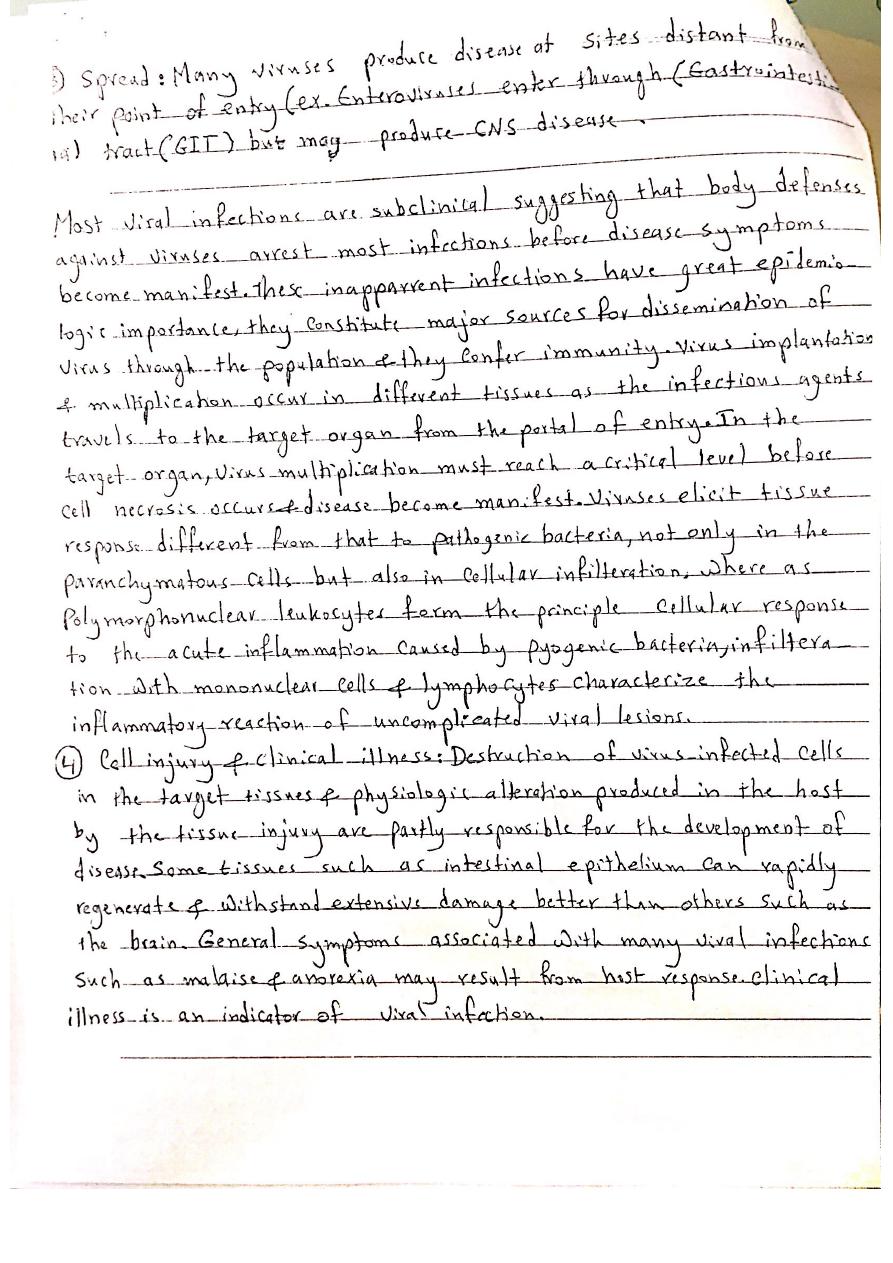 3) Spread: Many viruses produce disease at sites distant from
their point of entry (ex. Enteroviruses enter through (Gastrointesti-
nal) tract (GIT) but may produce CNS disease.
Most viral infections are subclinical suggesting that body defenses
against viruses arrest most infections before disease symptoms
become manifest. These inapparrent infections have great epidemio
logic importance, they constitute major sources for dissemination of
virus through the population & they confer immunity. Virus implantation
& multiplication occur in different tissues as the infectious agents
travels to the target organ from the portal of entry. In the
target organ, virus multiplication must reach a critical level before
cell necrosis occurs & disease become manifest. Viruses elicit tissue
response different from that to pathogenic bacteria, not only in the
paranchymatous cells but also in cellular infilteration, where as
Polymorphonuclear leukocytes form the principle cellular response
to the acute inflammation caused by pyogenic bacteria, infiltera
tion with mononuclear cells & lymphocytes characterize the
inflammatory reaction of uncomplicated viral lesions.
④ Cell injury & clinical illness: Destruction of virus-infected cells
in the target tissues & physiologic alteration produced in the host
by the tissue injury are partly responsible for the development of
disease. Some tissues such as intestinal epithelium can rapidly
regenerate & withstand extensive damage better than others such as
the brain. General symptoms associated with many viral infections
such as malaise & anorexia may result from host response. clinical
illness is an indicator of viral infection.